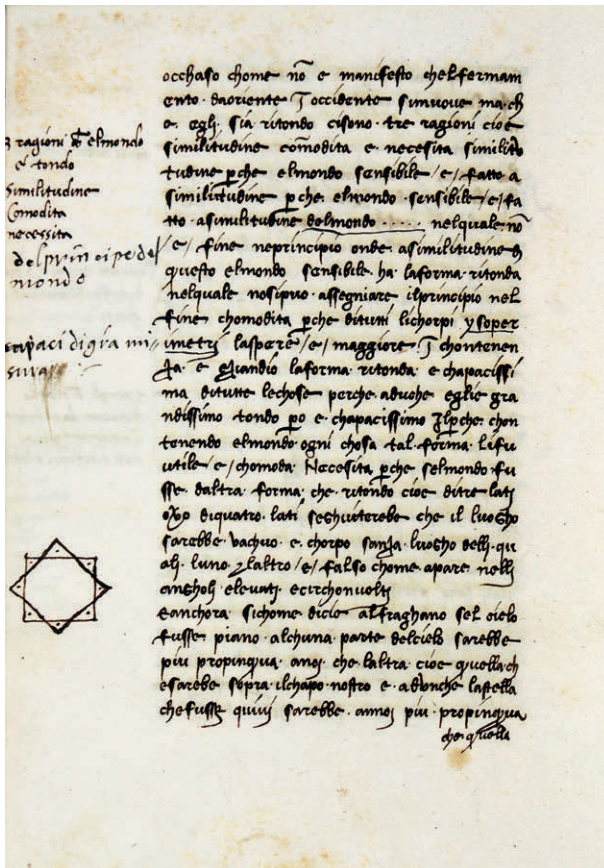 occhaso chome nō e manifesto chelfermam
ento · daoriente ⁊ occidente simuove ma · ch
e · egli · sia · ritondo cisono · tre ragioni cioe
similitudine cōmodita e · necesita similit
tudine ꝑche elmondo sensibile /e/ fatto a
similitudine ꝑche elmondo · sensibile /e/ fa
tto · asimilitudine delmondo ..... nelquale nō
/e/ fine neprincipio onde asimilitudine
questo elmondo sensibile · ha · laforma · ritonda
nelquale nosipuo · assegniare ilprincipio nel
fine chomodita ꝑche ditutti lichorpi ysoper
imetri lasperē /e/ maggiore ⁊ chontenen
laforma · ritonda · e · chapacissi
ma · ditutte lechose perche · eglie gra
ndissimo tondo ꝑo e · chapacissimo chon
tenendo elmondo · ogni · chosa tal · forma · lifu
utile /e/ chomoda Necesita ꝑche selmondo · fu
sse · daltra · forma · che · ritondo cioe ditre lati
diquatro · lati seghuiterebe che il luogho
sarebbe · vachuo · e · chorpo sanza · luogho delli · qu
ali · luno · laltro /e/ falso chome · apare nelli
angholi · elevati ecirchonvolti
eanchora · sichome · dicie alfraghano sel cielo
fusse piano · alchuna · parte delcielo sarebbe
piu propinqua · anoi · che · laltra · cioe quella · ch
esarebe sopra · ilchapo · nostro e · adonche lastella
chefusse quivi sarebbe · annoi piu · propinqua
che quella
3 ragioni elmondo
e tondo
Similitudine
Comodita
necessita
del principe del
mondo
capaci di gra mi
sura